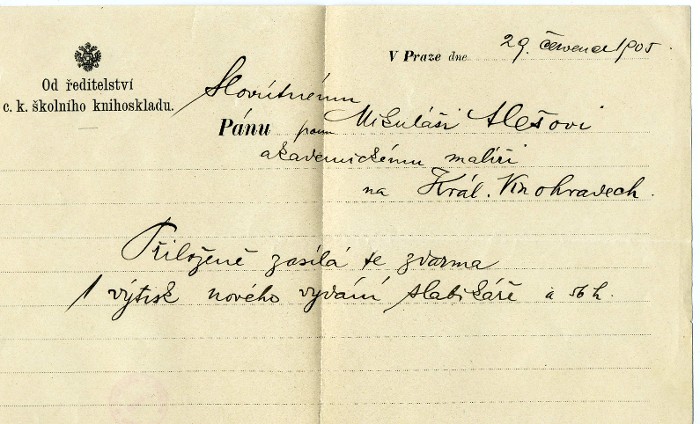 V Praze dne 29. července 1905
Od ředitelství
c. k. školního knihoskladu.
Slovútnému
Pánu panu Mikuláši Alešovi
akademickému malíři
na Král. Vinohradech.
Přiloženě zasílá se zdarma
1 výtisk nového vydání slabikáře à 56 h.